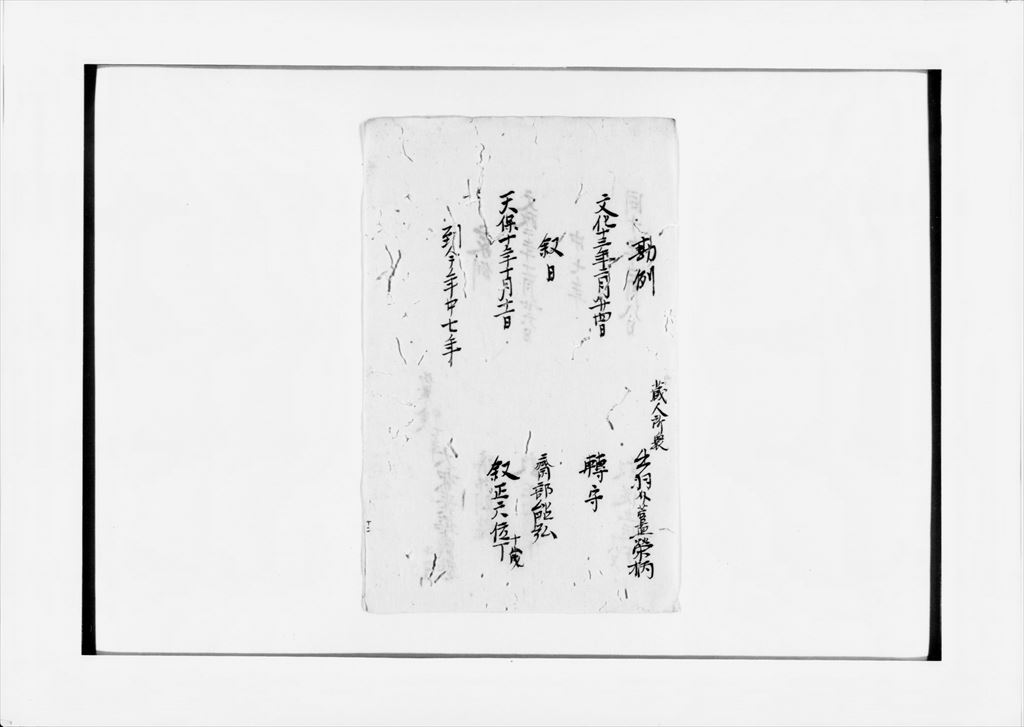 勘例
蔵人所衆
出羽介藎榮柄
文化十三年二月廿四日
轉守
叙日
齋部能弘
天保十二年十月十二日
叙正六位下
十歳
到今年中七年